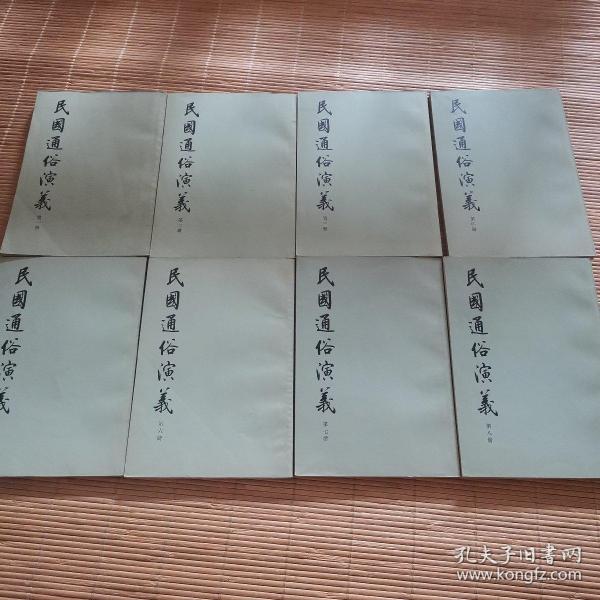 民國通俗演義
第一冊
民國通俗演義
第二冊
民國通俗演義
民國通俗演義
第四冊
民國通俗演義
民國通俗演義
第六冊
民國通俗演義
第七冊
民國通俗演義
第八冊
孔夫子旧书网
www.kongfz.com